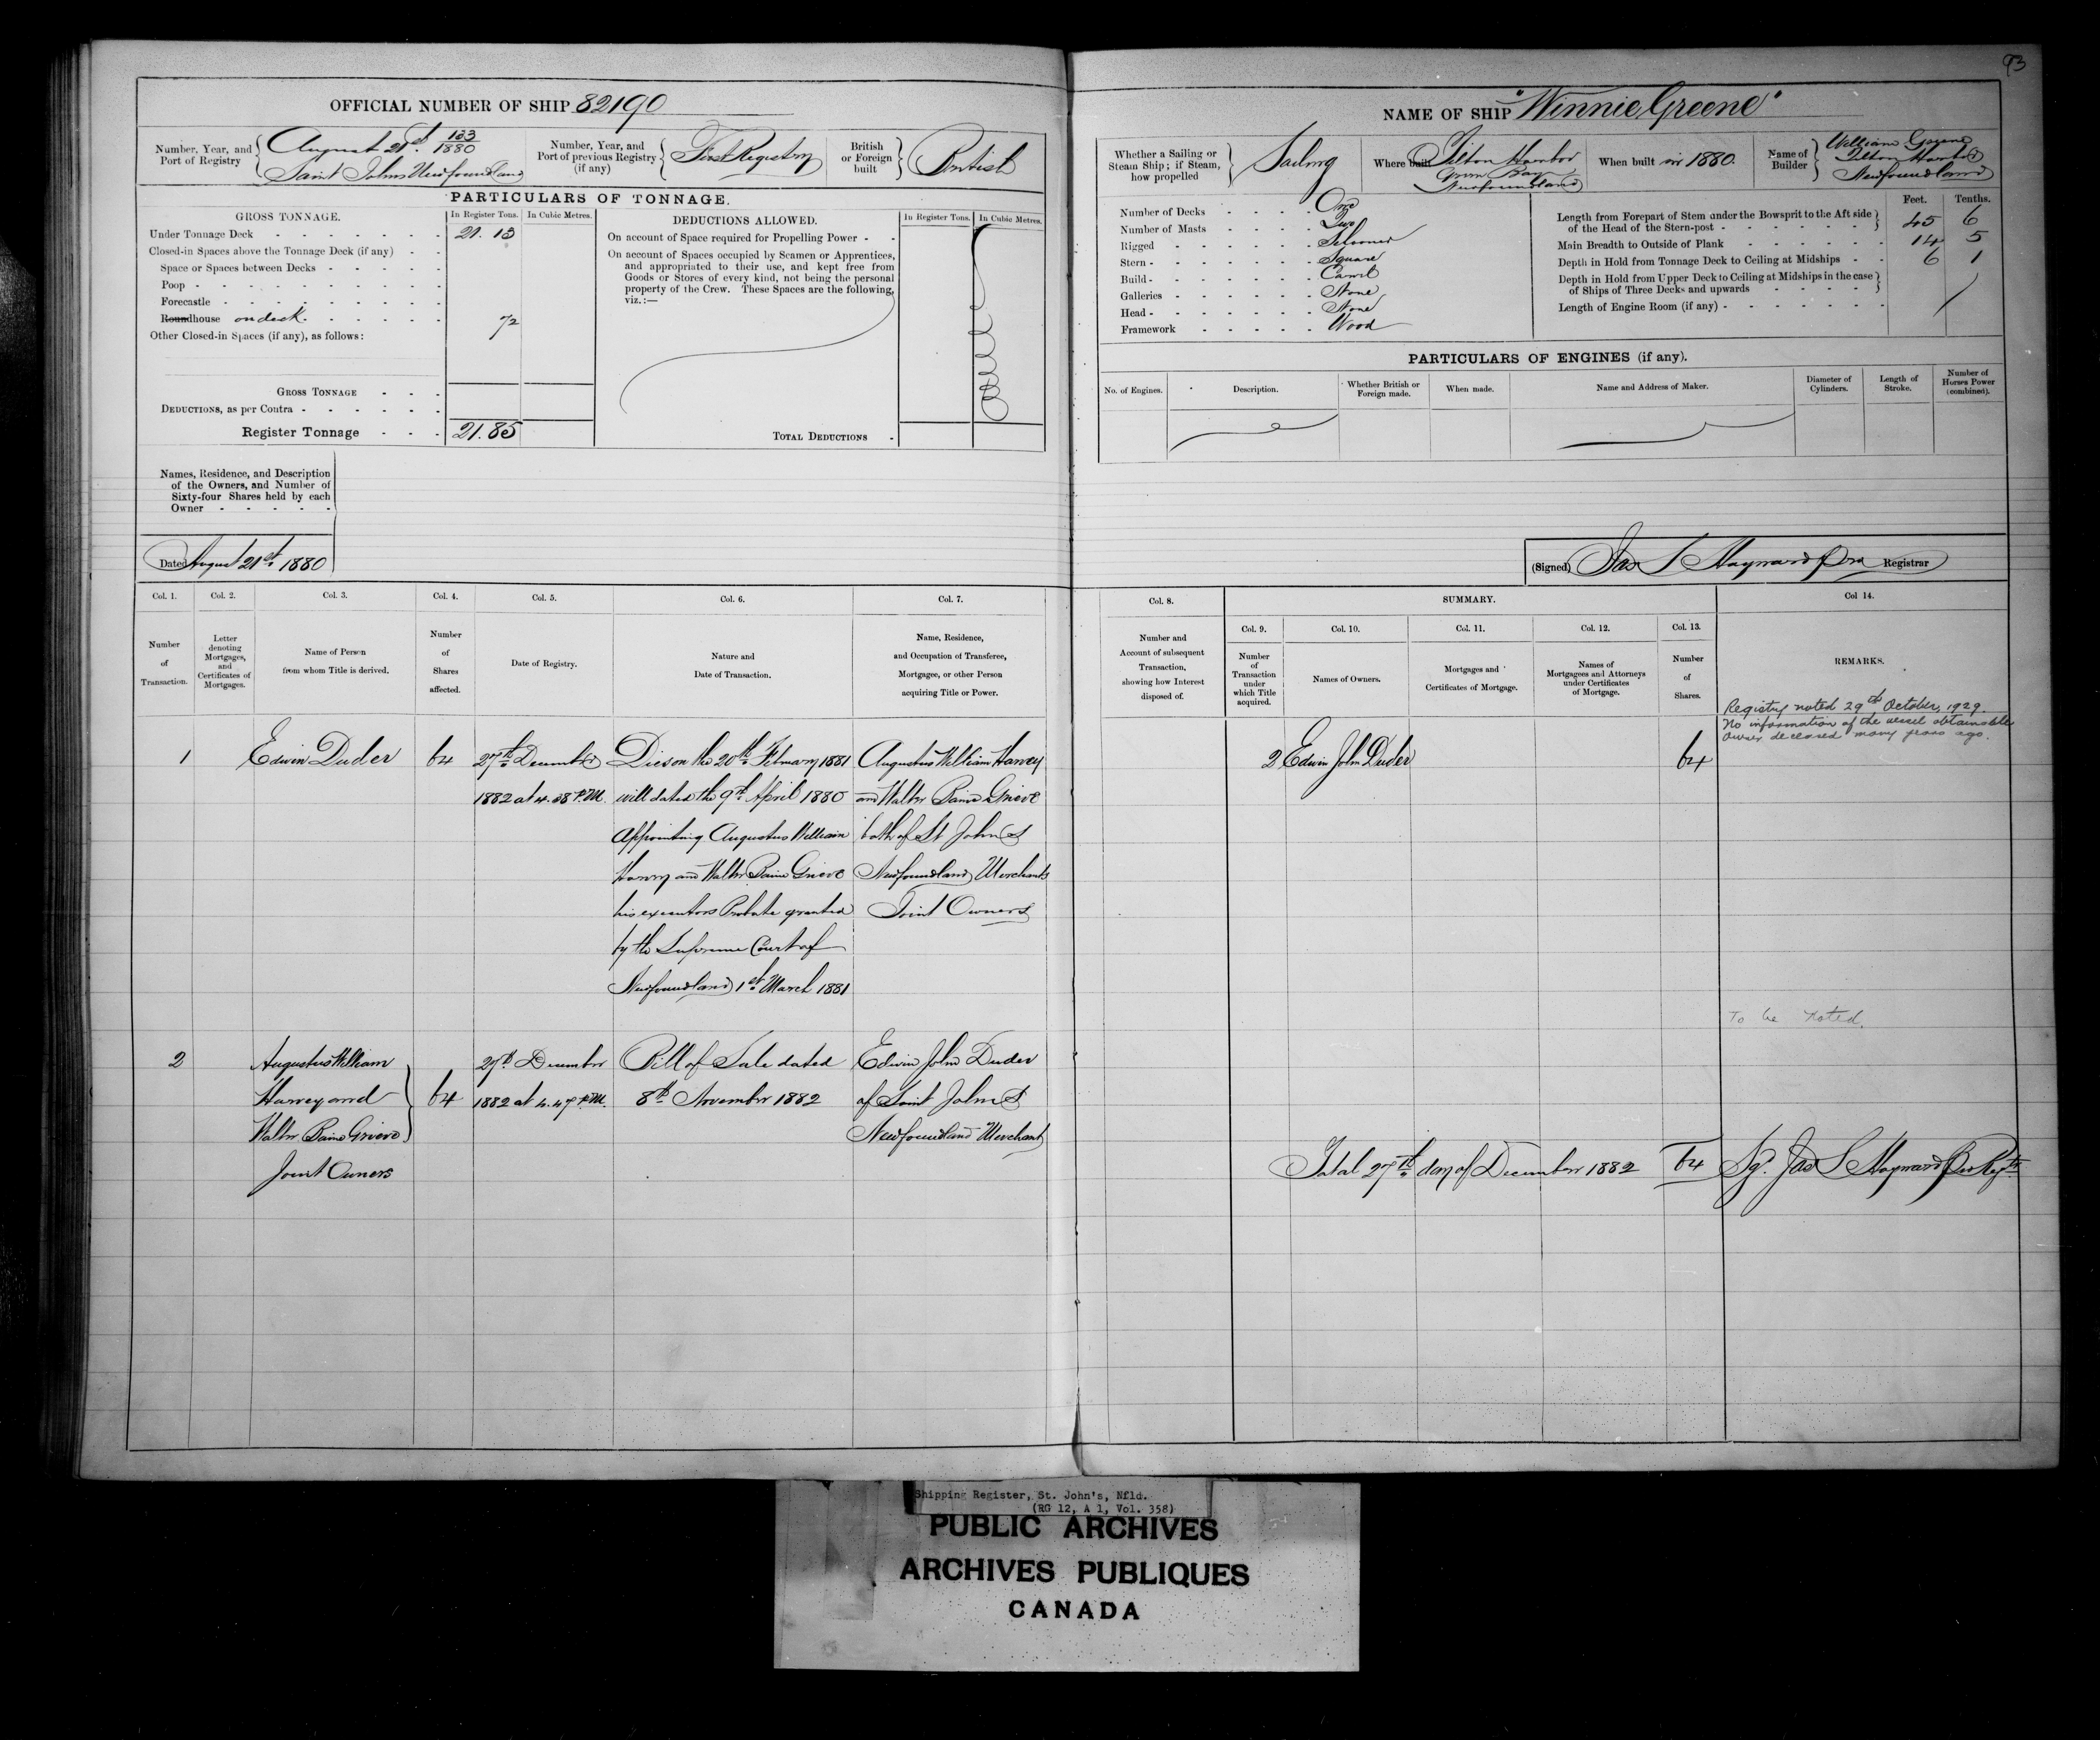 93
OFFICIAL NUMBER OF SHIP 82190
Number, Year, and Port of Registry
August 21st 133/1880
Saint Johns Newfoundland
Number, Year, and Port of previous Registry (if any)
First Registry
British or Foreign built
British
PARTICULARS OF TONNAGE.
GROSS TONNAGE.
In Register Tons.
In Cubic Metres.
Under Tonnage Deck 21.13
Closed-in Spaces above the Tonnage Deck (if any)
Space or Spaces between Decks
Poop
Forecastle
Roundhouse on deck. 72
Other Closed-in Spaces (if any), as follows:
GROSS TONNAGE
DEDUCTIONS, as per Contra
Register Tonnage 21.85
DEDUCTIONS ALLOWED.
In Register Tons.
In Cubic Metres.
On account of Space required for Propelling Power
On account of Spaces occupied by Seamen or Apprentices,
and appropriated to their use, and kept free from
Goods or Stores of every kind, not being the personal
property of the Crew. These Spaces are the following,
viz.:—
TOTAL DEDUCTIONS
Names, Residence, and Description
of the Owners, and Number of
Sixty-four Shares held by each
Owner
Dated August 21st 1880
NAME OF SHIP "Winnie Greene"
Whether a Sailing or
Steam Ship; if Steam,
how propelled
Sailing
Where built
Tilton Harbor
Green Bay
Newfoundland
When built in 1880.
Name of Builder
William Greene
Tilton Harbor
Newfoundland
Number of Decks One
Number of Masts Two
Rigged Schooner
Stern Square
Build Carvel
Galleries None
Head None
Framework Wood
Feet. Tenths.
Length from Forepart of Stem under the Bowsprit to the Aft side
of the Head of the Stern-post 45 6
Main Breadth to Outside of Plank 14 5
Depth in Hold from Tonnage Deck to Ceiling at Midships 6 1
Depth in Hold from Upper Deck to Ceiling at Midships in the case
of Ships of Three Decks and upwards
Length of Engine Room (if any)
PARTICULARS OF ENGINES (if any).
No. of Engines.
Description.
Whether British or Foreign made.
When made.
Name and Address of Maker.
Diameter of Cylinders.
Length of Stroke.
Number of Horses Power (combined).
(Signed) Jas S Hayward Registrar
Col. 1.
Number of Transaction.
Col. 2.
Letter denoting Mortgages, and Certificates of Mortgages.
Col. 3.
Name of Person from whom Title is derived.
Col. 4.
Number of Shares affected.
Col. 5.
Date of Registry.
Col. 6.
Nature and Date of Transaction.
Col. 7.
Name, Residence, and Occupation of Transferee, Mortgagee, or other Person acquiring Title or Power.
Col. 8.
Number and Account of subsequent Transaction, showing how Interest disposed of.
SUMMARY.
Col. 9.
Number of Transaction under which Title acquired.
Col. 10.
Names of Owners.
Col. 11.
Mortgages and Certificates of Mortgage.
Col. 12.
Names of Mortgagees and Attorneys under Certificates of Mortgage.
Col. 13.
Number of Shares.
Col 14.
REMARKS.
1
Edwin Duder
64
27th December
1882 at 4.38 P.M.
Dies on the 20th February 1881
will dated the 9th April 1880
Appointing Augustus William
Harvey and Walter Baine Grieve
his executors Probate granted
by the Supreme Court of
Newfoundland 1st March 1881
Augustus William Harvey
and Walter Baine Grieve
both of St John's
Newfoundland Merchants
Joint Owners
2
Augustus William
Harvey and
Walter Baine Grieve
Joint Owners
64
27th December
1882 at 4.47 P.M.
Bill of Sale dated
8th November 1882
Edwin John Duder
of Saint John's
Newfoundland Merchant
2 Edwin John Duder 64
Registry noted 29th October, 1929.
No information of the vessel obtainable
owner deceased many years ago.
To be noted.
Total 27th day of December 1882 64 Sg. Jas S Hayward
Shipping Register, St. John's, Nfld.
(RG 12, A 1, Vol. 358)
PUBLIC ARCHIVES
ARCHIVES PUBLIQUES
CANADA